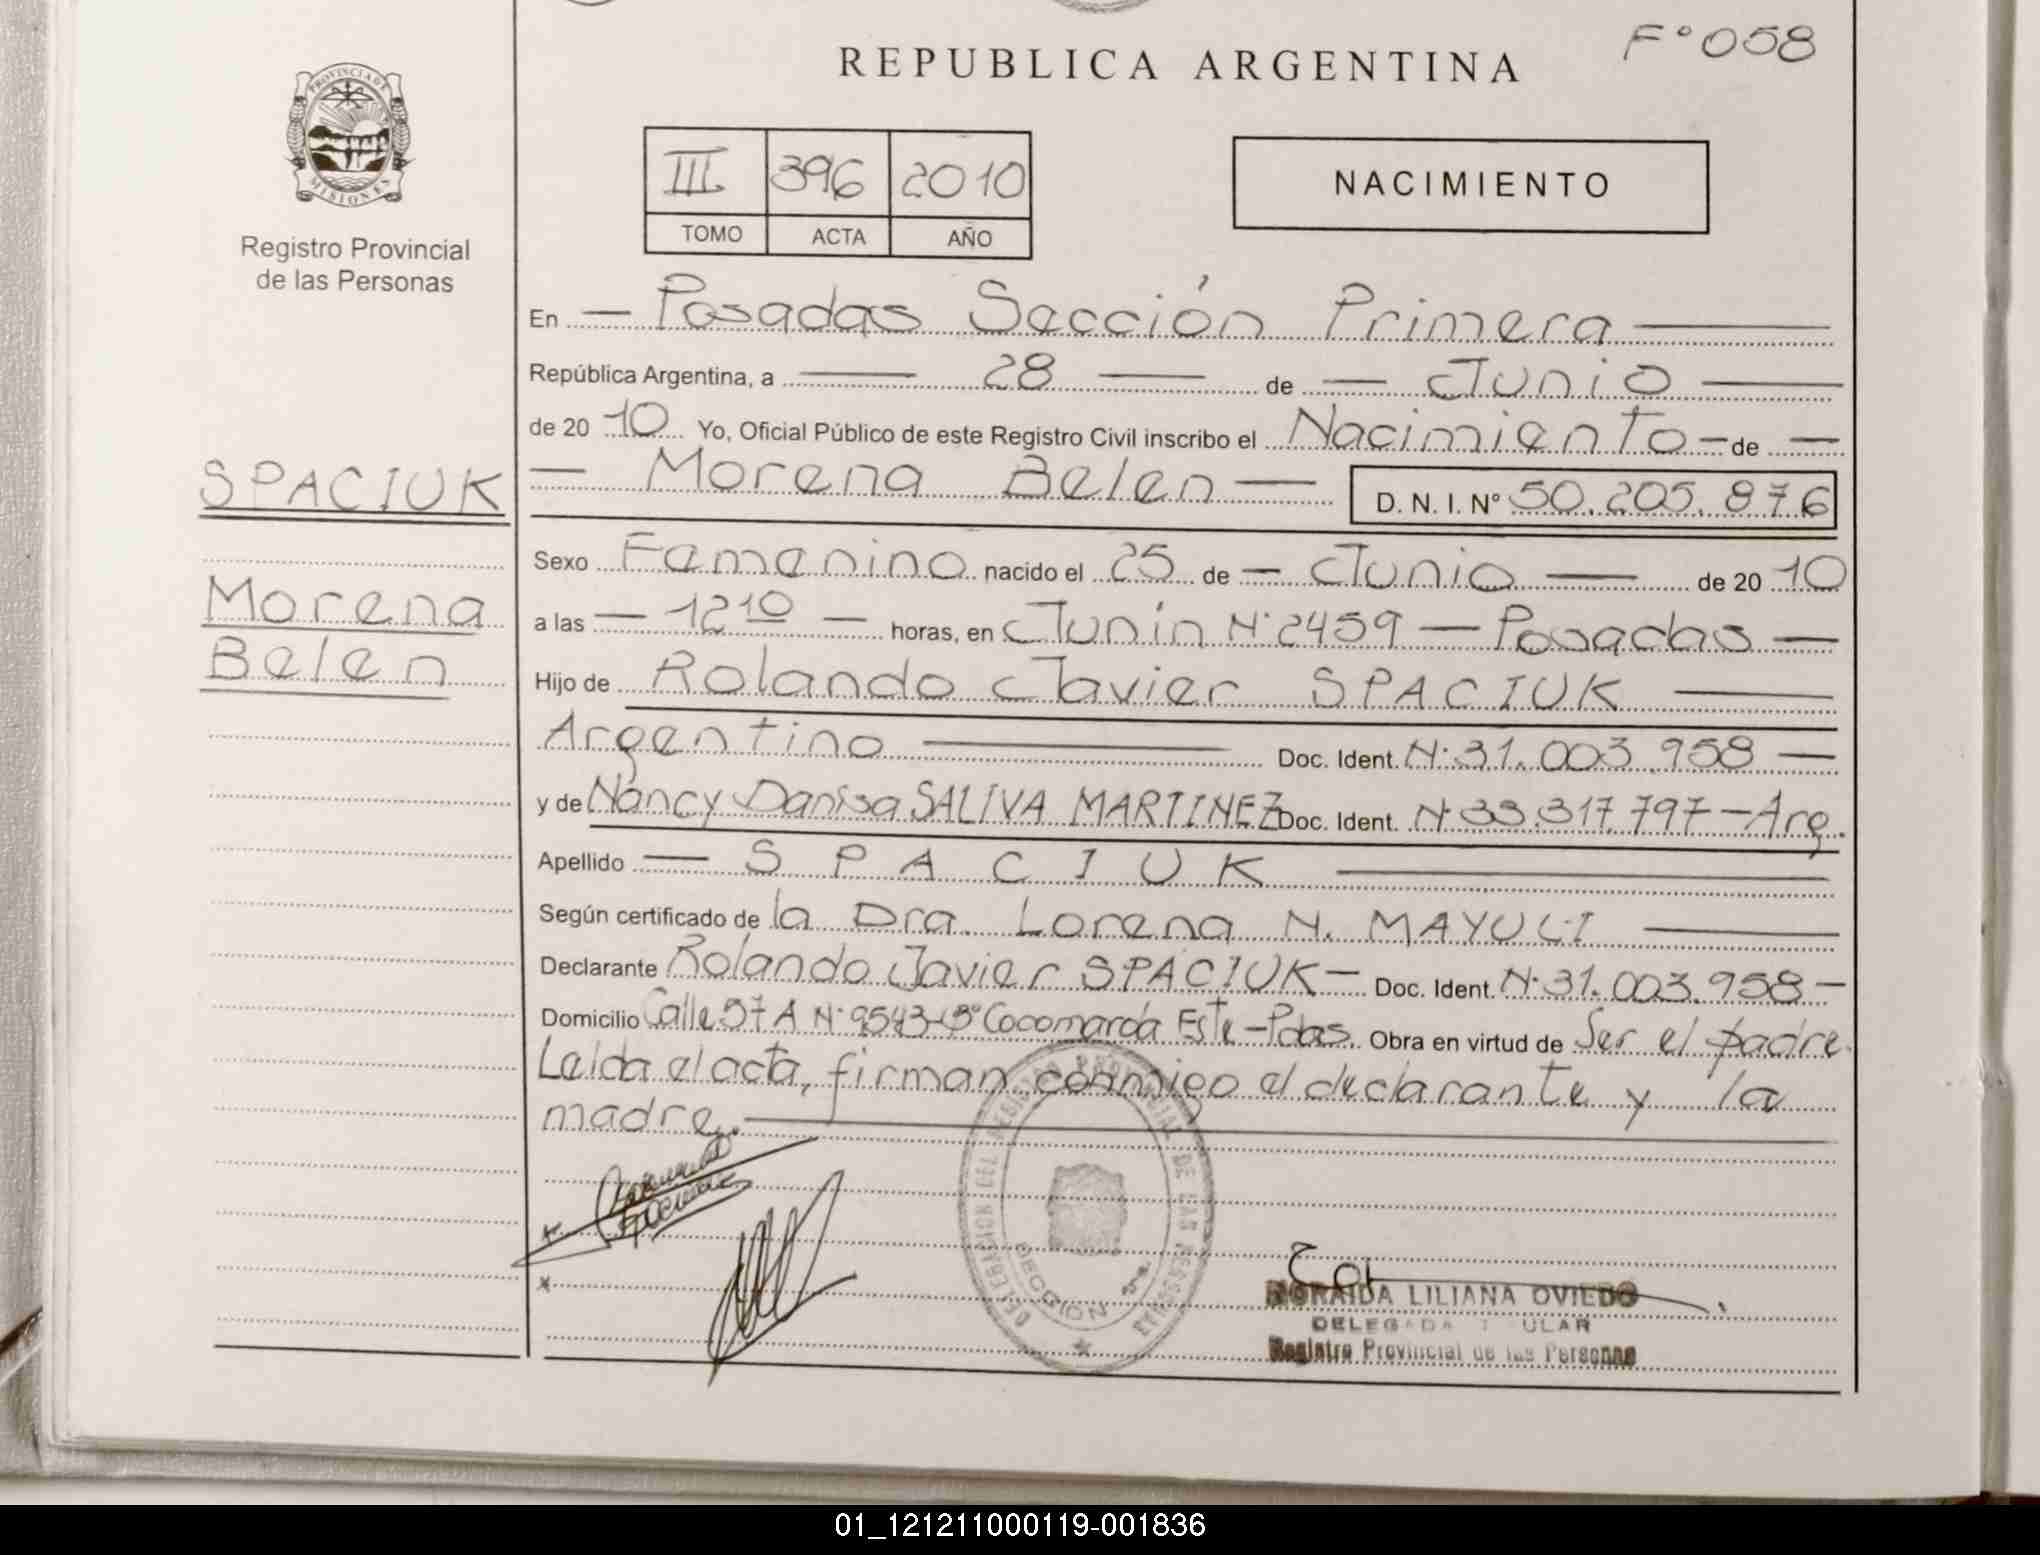 F° 058
REPUBLICA ARGENTINA
PROVINCIA DE
MISIONES
Registro Provincial
de las Personas
III 396 2010
TOMO ACTA AÑO
NACIMIENTO
En — Posadas Sección Primera —
República Argentina, a — 28 — de — Junio —
de 20 10 Yo, Oficial Público de este Registro Civil inscribo el Nacimiento — de —
SPACIUK
— Morena Belen — D. N. I. Nº 50.205.876
Morena
Belen
Sexo Femenino nacido el 25 de — Junio — de 20 10
a las — 12 10 — horas, en Junín N° 2459 — Posadas —
Hijo de Rolando Javier SPACIUK —
Argentino — Doc. Ident. N° 31.003.958 —
y de Nancy Danisa SALIVA MARTINEZ Doc. Ident. N° 33.317.797 — Arg.
Apellido — S P A C I U K —
Según certificado de la Dra. Lorena N. MAYULI —
Declarante Rolando Javier SPACIUK — Doc. Ident. N° 31.003.958 —
Domicilio Calle 57 A N° 9543-B° Cocomarola Este - Pdas. Obra en virtud de Ser el padre.
Leída el acta, firman conmigo el declarante y la
madre. —
DELEGACION DEL REGISTRO PROVINCIAL DE LAS PERSONAS
SECCION 1ra.
ZORAIDA LILIANA OVIEDO
DELEGADA TITULAR
Registro Provincial de las Personas
01_121211000119-001836